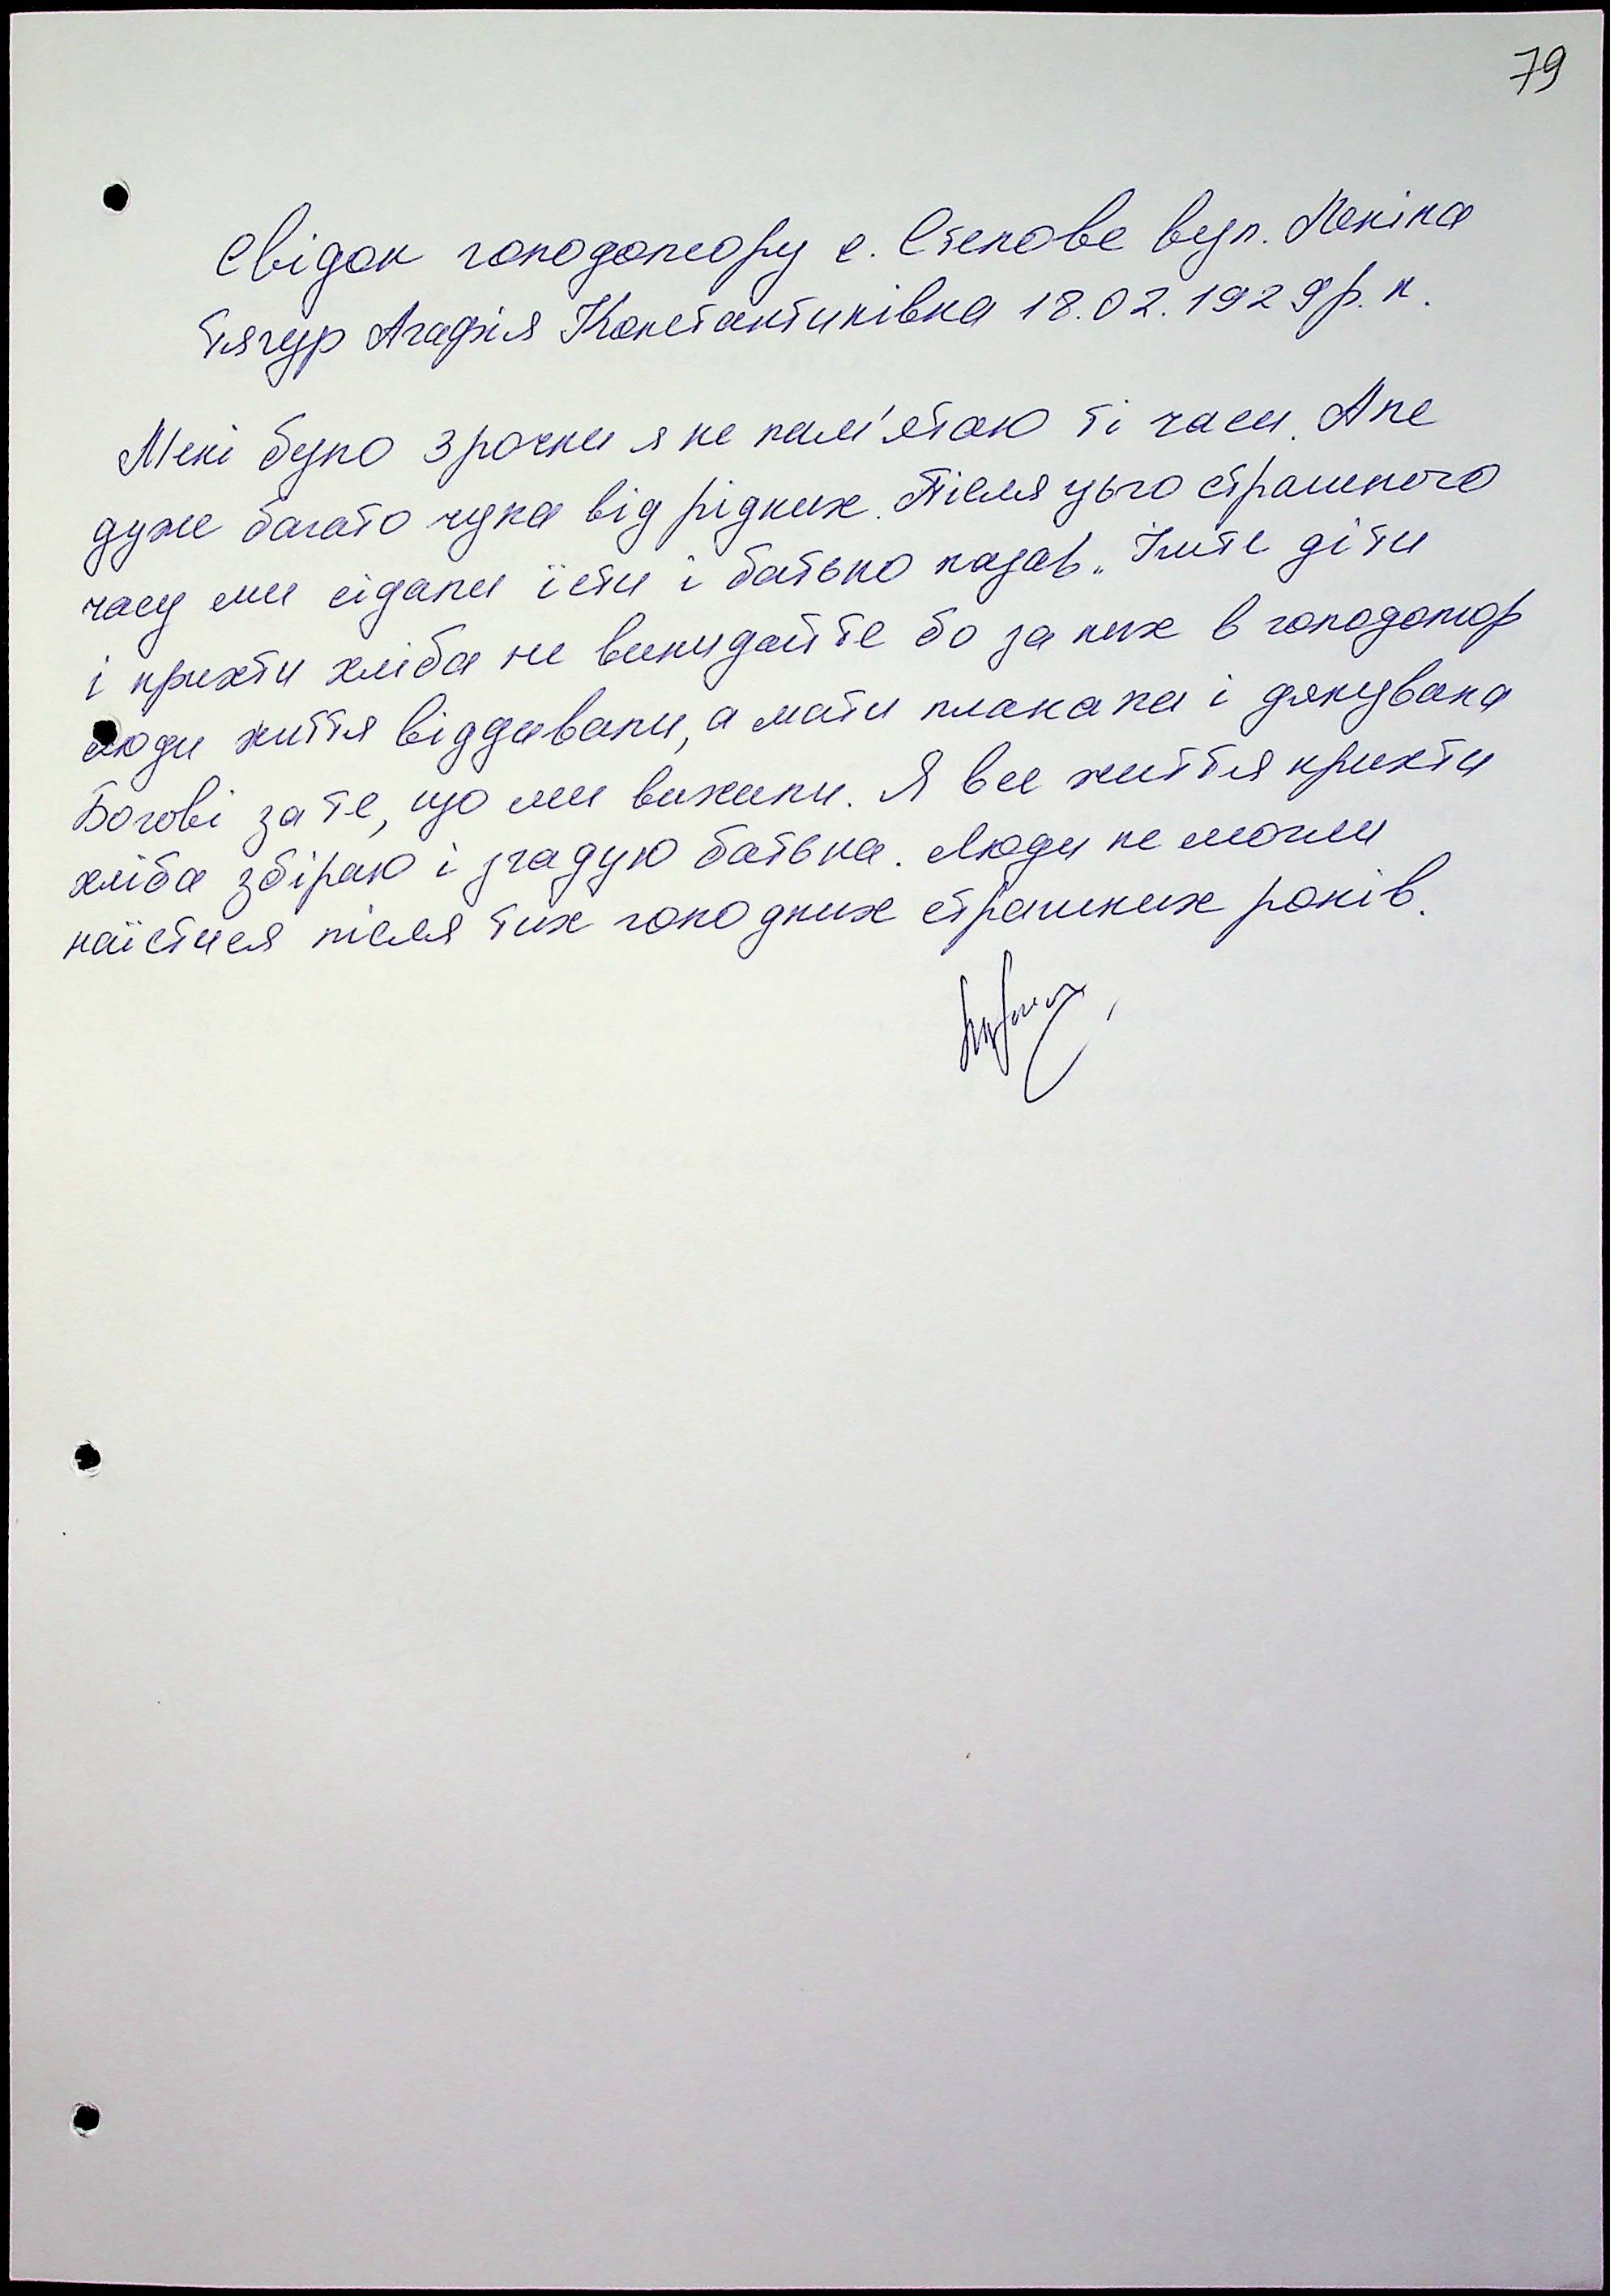 79
Свідок голодомору с. Степове вул. Леніна
Тягур Агафія Константинівна 18.02.1929р.н.
Мені було 3 рочки я не пам'ятаю ті часи. Але
дуже багато чула від рідних. Після цього страшного
часу ми сідали їсти і батько казав „Їжте діти
і крихти хліба не викидайте бо за них в голодомор
люди життя віддавали, а мати плакала і дякувала
Богові за те, що ми вижили. Я все життя крихти
хліба збіраю і згадую батька. Люди не могли
наїстися після тих голодних страшних років.